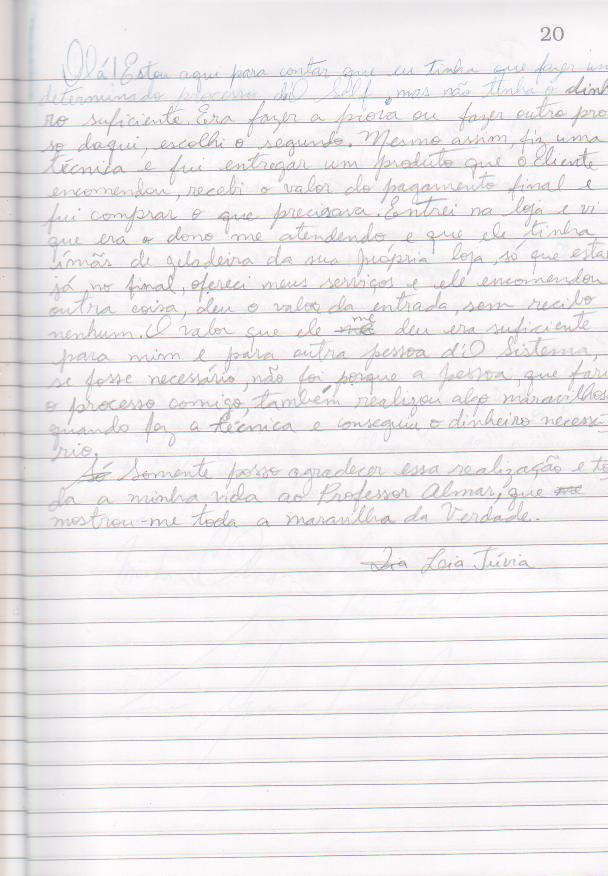 20
Olá! Estou aqui para contar que eu tinha que fazer um
determinado processo d'O Self, mas não tinha o dinhei
ro suficiente. Era fazer a prova ou fazer outro pro
so daqui, escolhi o segundo. Mesmo assim, fiz uma
técnica e fui entregar um produto que o cliente
encomendou, recebi o valor do pagamento final e
fui comprar o que precisava. Entrei na loja e vi
que era o dono me atendendo e que ele tinha
ímãs de geladeira da sua própria loja, só que esta
já no final, ofereci meus serviços e ele encomendou
outra coisa, deu o valor da entrada, sem recibo
nenhum. O valor que ele me deu era suficiente
para mim e para outra pessoa d'O Sistema,
se fosse necessário, não foi porque a pessoa, que fari
o processo comigo, também realizou algo maravilhos
quando fez a técnica e conseguiu o dinheiro necessá
rio.
Só Somente posso agradecer essa realização e to
da a minha vida ao Professor Almar, que me
mostrou-me toda a maravilha da Verdade.
Lia Túvia